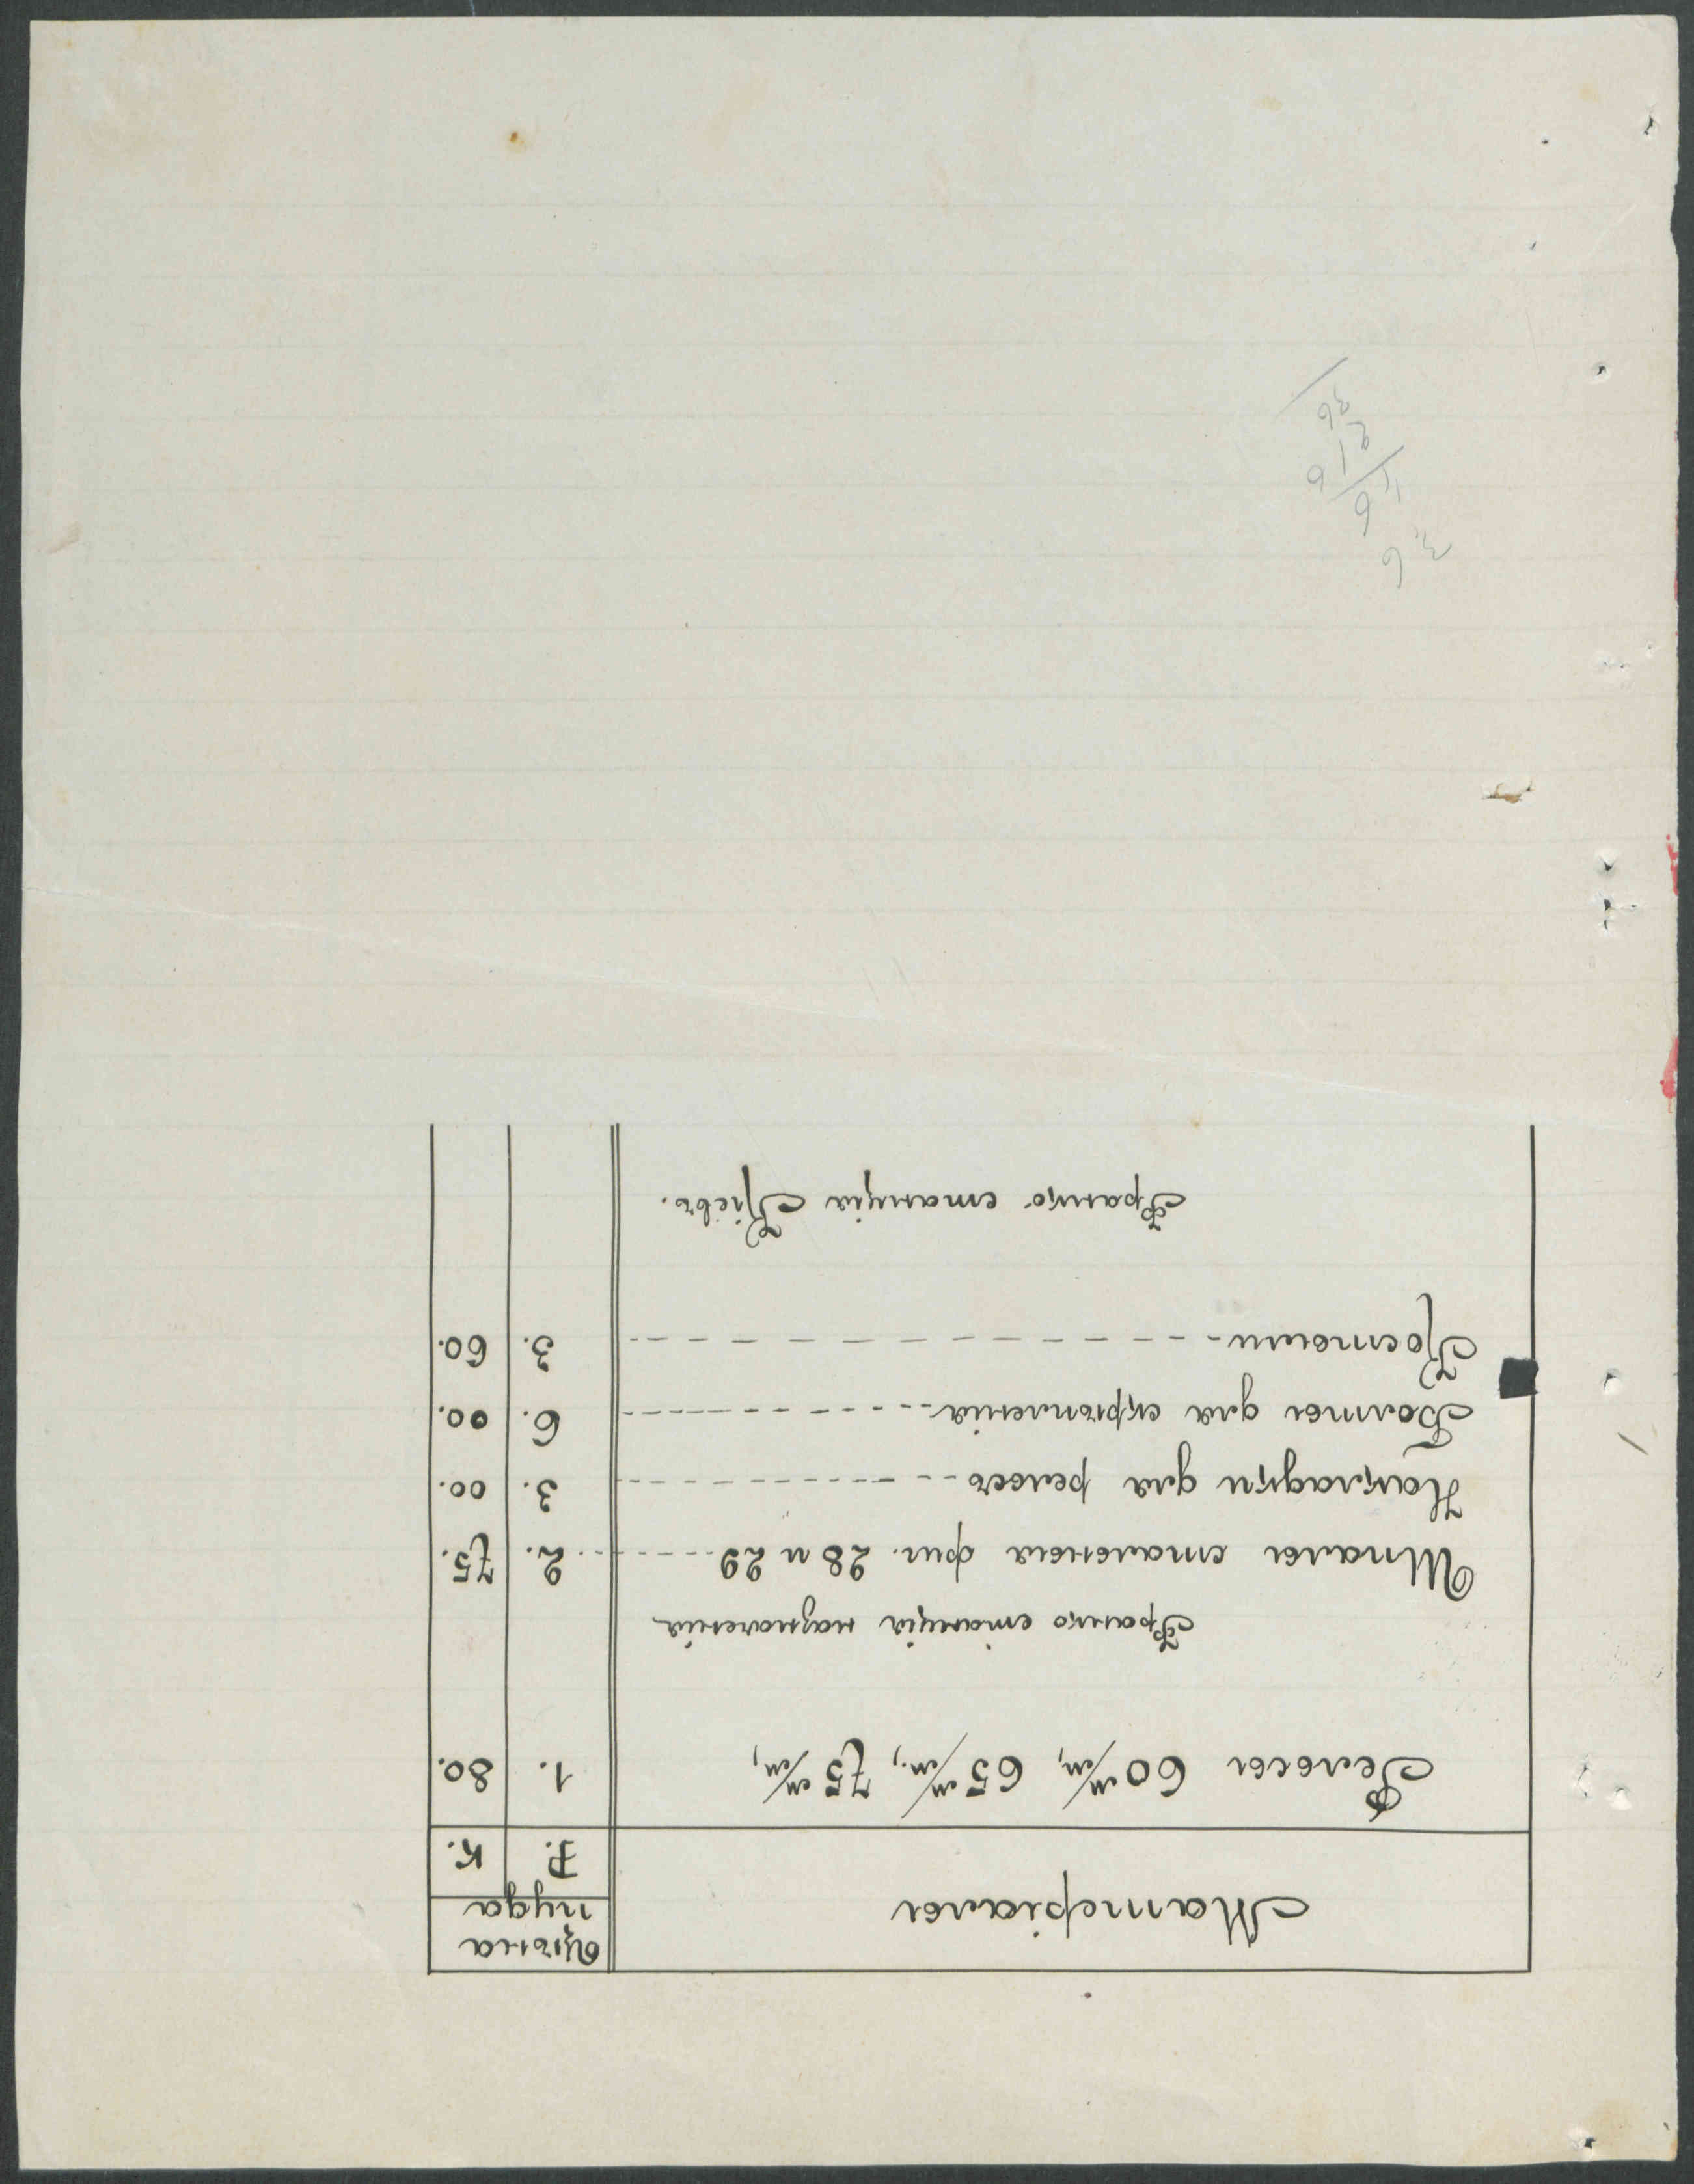 Матеріалы
Цѣна
пуда
Р. К.
Рельсы 60 м/м, 65 м/м., 75 м/м, 1. 80.
Франко станція назначенія
Шпалы стальныя фиг. 28 и 29 2. 75.
Накладки для рельсъ 3. 00.
Болты для скрѣпленія 6. 00.
Костыли 3. 60.
Франко станція Кіевъ.